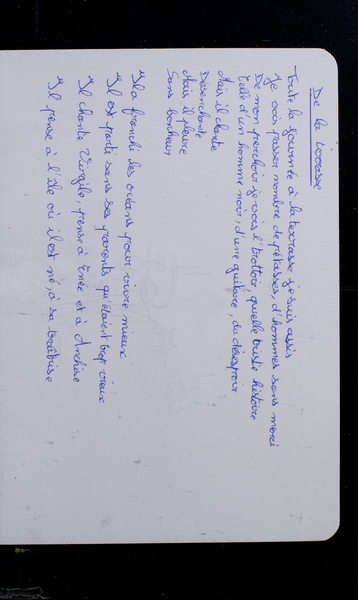 De la terrasse
Toute la journée à la terrasse je suis assis
Je vois passer nombre de pétasses, d'hommes sans merci
De mon perchoir je vois l'trottoir, quelle triste histoire
Celle d'un homme noir, d'une guitare, du désespoir
Mais il chante
Désenchanté
Mais il pleure
Sans bonheur
Il a franchi les océans pour vivre mieux
Il est parti sans ses parents qu'étaient trop vieux
Il chante Virgile, pense à Enée et à Anchise
Il pense à l'île où il est né, à sa